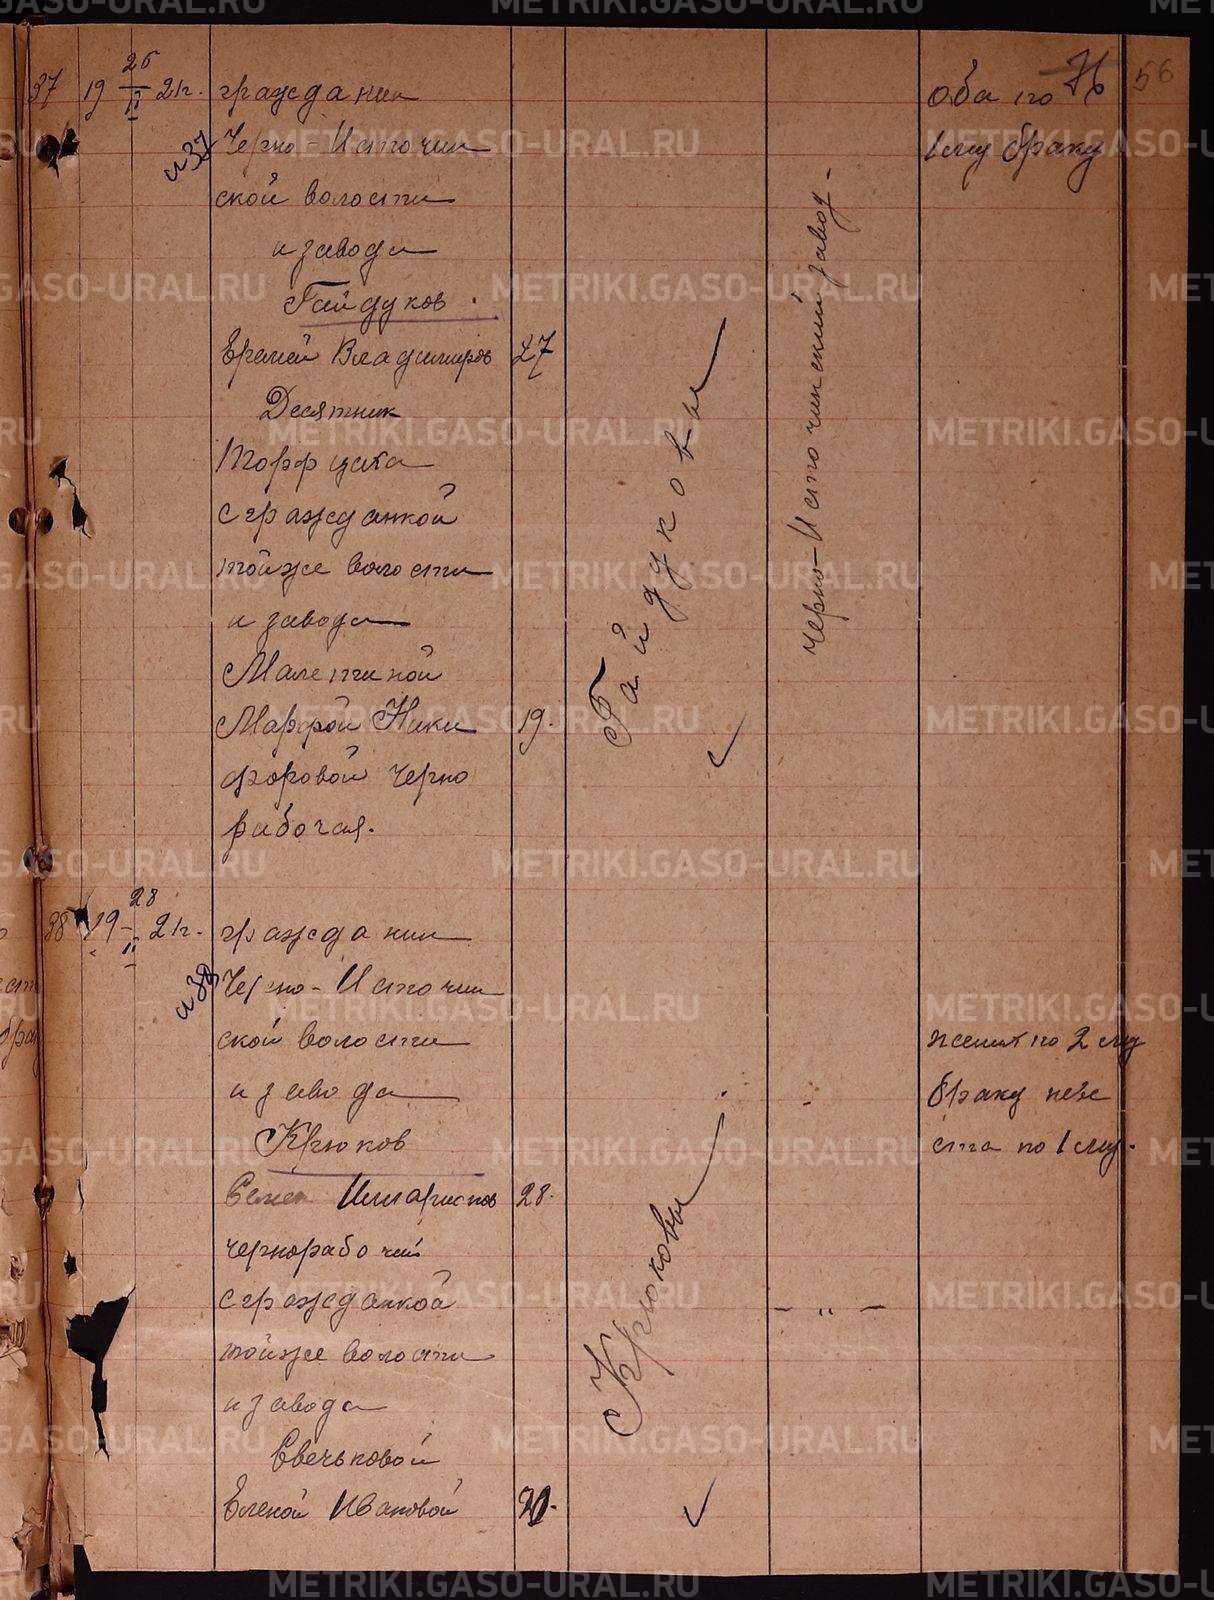 56
37 19 26/II 21г. гражданин
Черно-Источин
ской волости
и завода
Гайдуков.
Еремей Владимиров 27
Десятник
Торф
с гражданкой
тойже волости
и завода
Малетиной
Марфой Ники 19.
форовой черно
рабочая.
Гайдуковы
Черно-Источинский завод-
оба по
1му браку
38 19 28/II 21г. гражданин
Черно-Источин
ской волости
и завода
Крюков
Семен 28.
чернорабочий
с гражданкой
тойже волости
и завода
Свечьковой
Еленой Ивановой
Крюковы
- " -
жених по 2 му
браку неве
ста по 1 му.
METRIKI.GASO-URAL.RU